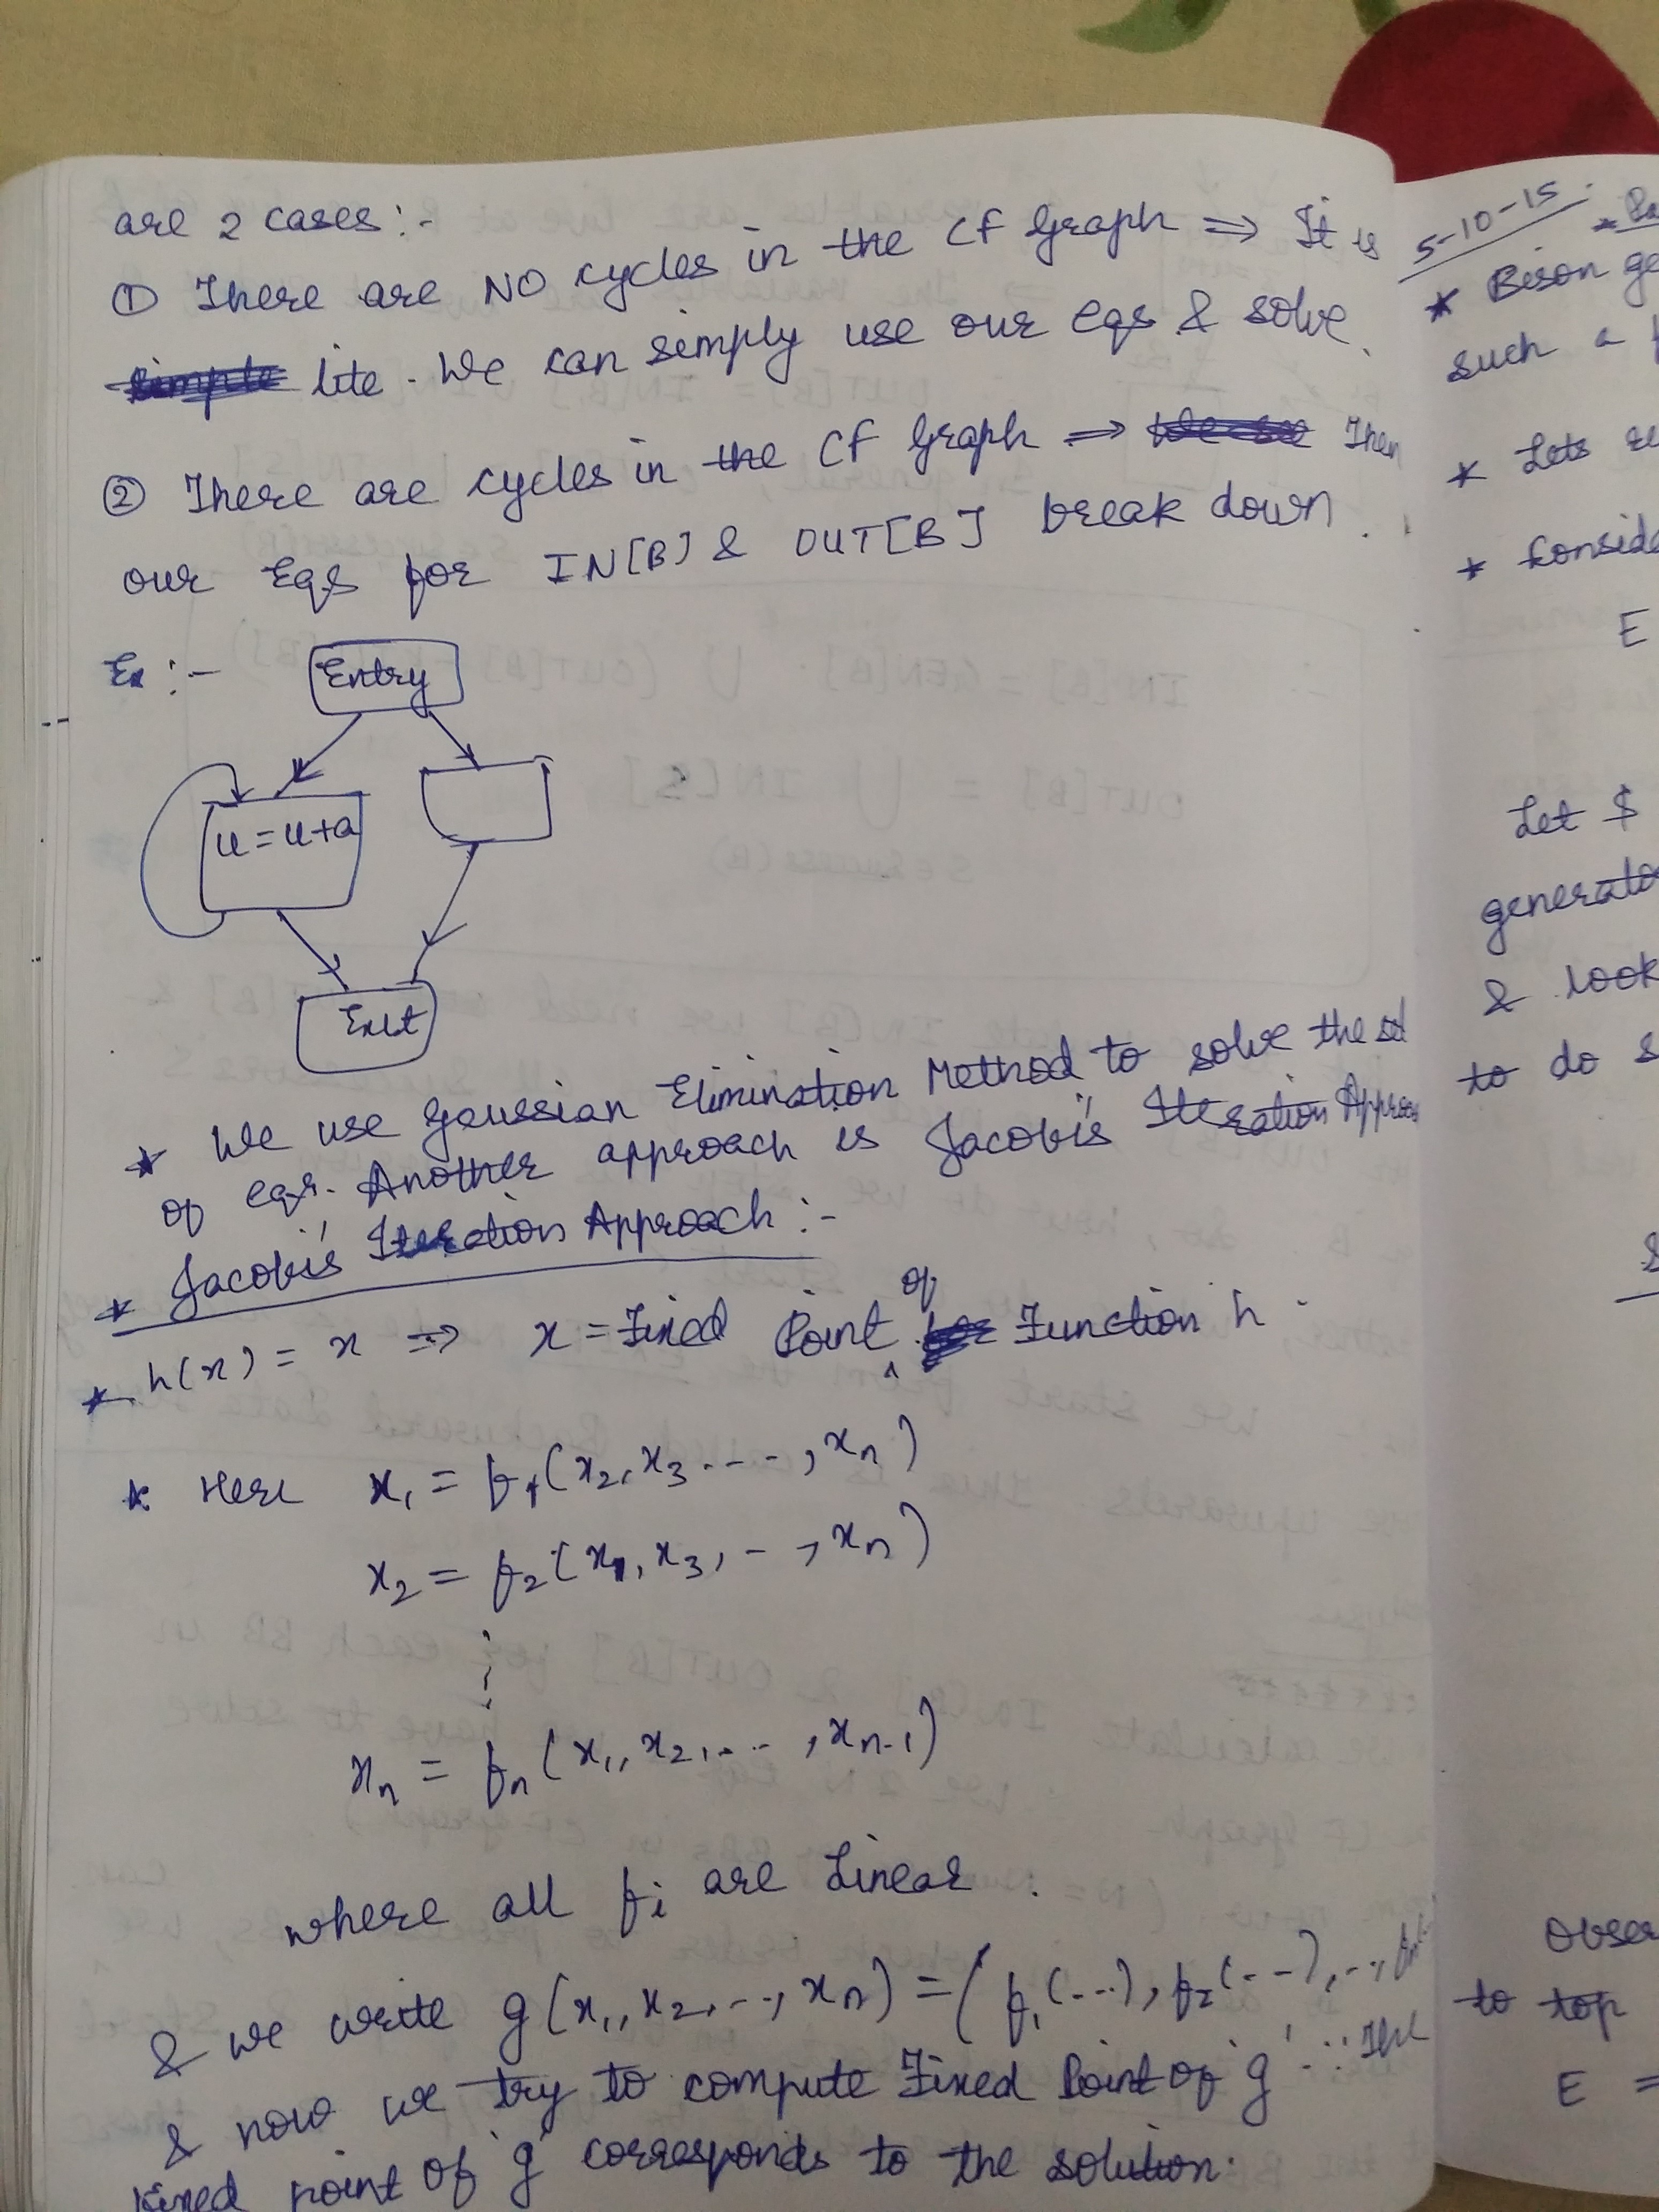 are 2 cases:-
① There are NO cycles in the CF Graph ⇒ It is
lite. We can simply use our eqs & solve.
② There are cycles in the CF Graph ⇒ Then
our Eqs for IN[B] & OUT[B] break down.
Ex :-
Entry
u = u+a
Exit
* We use Gaussian Elimination Method to solve the set
of eqs. Another approach is Jacobi's Iteration Approach
* Jacobi's Iteration Approach :-
* h(x) = x ⇒ x = Fixed Point of Function h.
* Here x₁ = f₁(x₂, x₃ ..., xₙ)
x₂ = f₂(x₁, x₃, .., xₙ)
⋮
xₙ = fₙ(x₁, x₂, ..., xₙ₋₁)
where all fᵢ are Linear.
& we write g(x₁, x₂, .., xₙ) = (f₁(...), f₂(...), ..,
& now we try to compute Fixed Point of 'g' ∵ The
fixed point of 'g' corresponds to the solution.
5-10-15
* Bison ge
such a
* Lets
* Conside
E
Let $
generato
& look
to do s
Obser
to top
E =